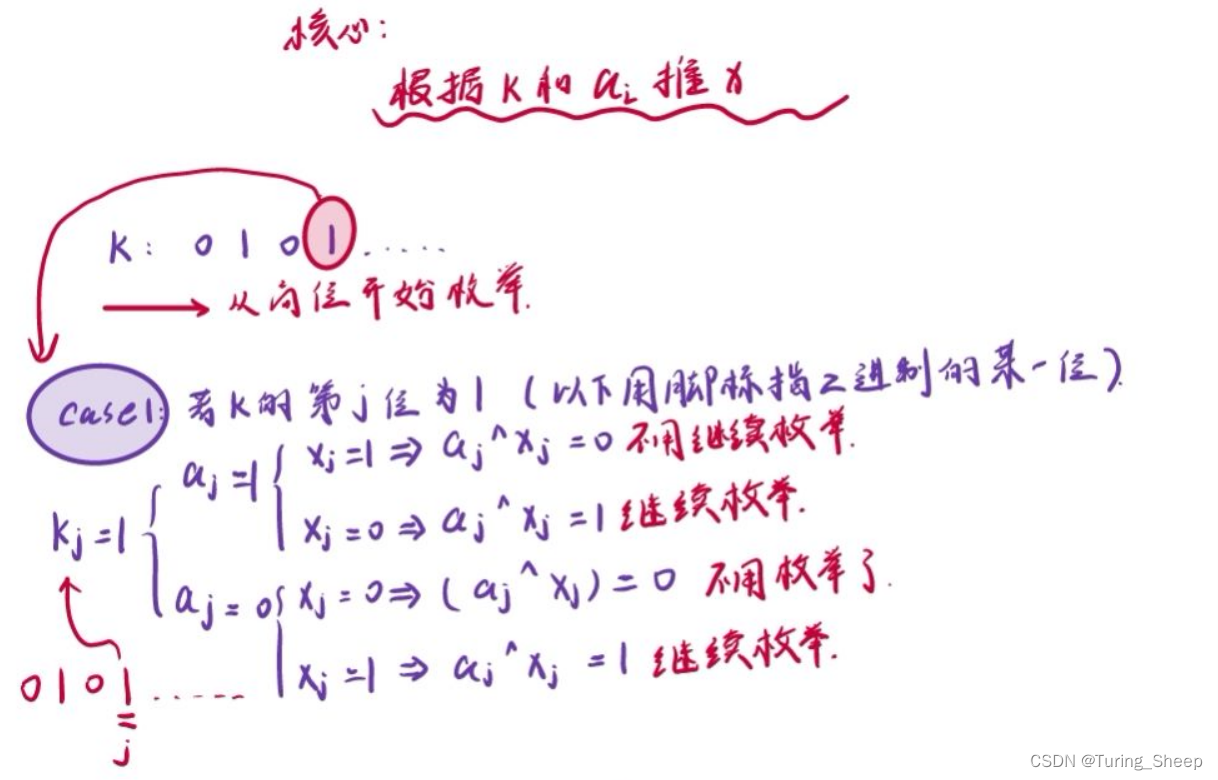 核心:
根据 K 和 ai 推 x
K: 0 1 0 1 .....
从高位开始枚举.
case1: 若 K 的第 j 位为 1 (以下用脚标指二进制的某一位)
Kj=1
aj=1
xj=1 ⇒ aj^xj =0 不用继续枚举.
xj=0 ⇒ aj^xj =1 继续枚举.
aj=0
xj=0 ⇒ (aj^xj)=0 不用枚举了.
xj=1 ⇒ aj^xj =1 继续枚举.
0101......
j
CSDN @Turing_Sheep